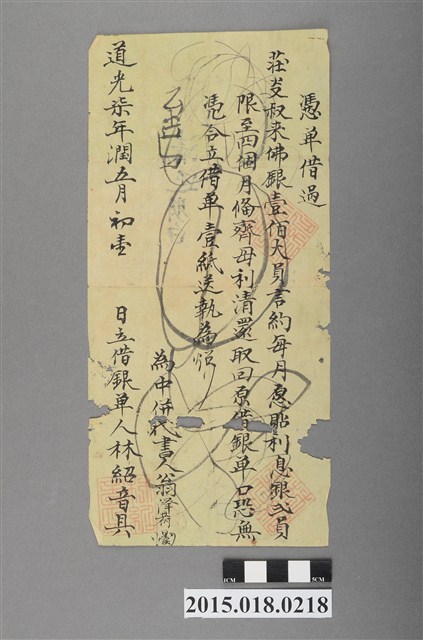 憑单借過
莊叔来佛銀壹佰大員言約每月愿貼利息銀弍員
限至四個月備齊母利清還取回原借銀单口恐無
憑合立借单壹紙送執為炤
為中併代書人翁
道光柒年潤五月初壹 日立借銀单人林紹音具
1CM 5CM
2015.018.0218